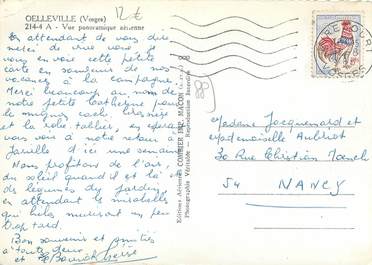 OELLEVILLE (Vosges)
214-4 A - Vue panoramique aérienne
12€
En attendant de vous dire
merci de vive voix, je
vous en voie cette petite
carte en souvenir de nos
vacances à la campagne
Merci beaucoup au nom de
notre petite Catherine pour
le mignon cache brassière
et la robe-tablier, en espérant
vous voir à notre retour à
Jarville d'ici une semaine
Nous profitons de l'air,
du soleil quand il est là et
des légumes du jardin,
en attendant les mirabelles
qui hélas muriront un peu
trop tard.
Bon souvenir et amitiés
à toutes deux
Editions Aériennes COMBIER IMP. MACON
Photographie Véritable - Reproduction Interdite
88
Madame Jacquenard et
Mademoiselle Aubriot
30 Rue Christian Moench
54 NANCY